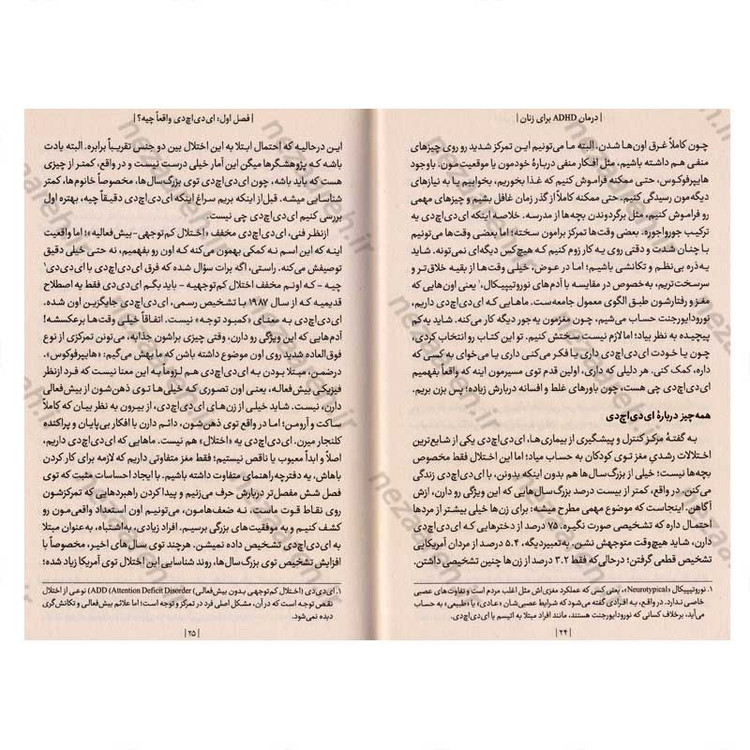 | درمان ADHD برای زنان |
چون کاملاً غرق اون‌ها شدن. البته ما می‌تونیم این تمرکز شدید رو روی چیزهای
منفی هم داشته باشیم، مثل افکار منفی دربارهٔ خودمون یا موقعیت‌مون. باوجود
هایپرفوکوس، حتی ممکنه فراموش کنیم که غذا بخوریم، بخوابیم یا به نیازهای
دیگه‌مون رسیدگی کنیم. حتی ممکنه کاملاً از گذر زمان غافل بشیم و چیزهای مهمی
رو فراموش کنیم، مثل برگردوندن بچه‌ها از مدرسه. خلاصه اینکه ای‌دی‌اچ‌دی یه
ترکیب جورواجوره. بعضی وقت‌ها تمرکز برامون سخته؛ اما بعضی وقت‌ها می‌تونیم
با چنان شدت و دقتی روی یه کار زوم کنیم که هیچ‌کس دیگه‌ای نمی‌تونه. شاید
یه‌ذره بی‌نظم و تکانشی باشیم؛ اما در عوض، خیلی وقت‌ها از بقیه خلاق‌تر و
سرسخت‌تریم، به‌خصوص در مقایسه با آدم‌های نوروتیپیکال،۱ یعنی اون‌هایی که
مغز و رفتارشون طبق الگوی معمول جامعه‌ست. ماهایی که ای‌دی‌اچ‌دی داریم،
نورودایورجنت حساب می‌شیم، چون مغزمون یه‌جور دیگه کار می‌کنه. شاید یه‌کم
پیچیده به نظر بیاد؛ اما لازم نیست سختش کنیم. تو این کتاب رو انتخاب کردی،
چون یا خودت ای‌دی‌اچ‌دی داری یا فکر می‌کنی داری یا می‌خوای به کسی که
داره، کمک کنی. هر دلیلی که داری، اولین قدم توی مسیرمون اینه که واقعاً بفهمیم
ای‌دی‌اچ‌دی چی هست، چون باورهای غلط و افسانه دربارش زیاده؛ پس بزن بریم.
همه‌چیز دربارهٔ ای‌دی‌اچ‌دی
به گفتهٔ مرکز کنترل و پیشگیری از بیماری‌ها، ای‌دی‌اچ‌دی یکی از شایع‌ترین
اختلالات رشدیِ مغز توی کودکان به حساب میاد؛ اما این اختلال فقط مخصوص
بچه‌ها نیست. خیلی از بزرگ‌سال‌ها هم بدون اینکه بدونن، با ای‌دی‌اچ‌دی زندگی
می‌کنن. در واقع، کمتر از بیست درصد بزرگ‌سال‌هایی که این ویژگی رو دارن، ازش
آگاهن. اینجاست که موضوع مهمی مطرح میشه: برای زن‌ها خیلی بیشتر از مردها
احتمال داره که تشخیصی صورت نگیره. ۷۵ درصد از دخترهایی که ای‌دی‌اچ‌دی
دارن، شاید هیچ‌وقت متوجهش نشن. به‌تعبیردیگه، ۵.۴ درصد از مردان آمریکایی
تشخیص قطعی گرفتن؛ درحالی‌که فقط ۳.۲ درصد از زن‌ها چنین تشخیصی داشتن.
۱. نوروتیپیکال (Neurotypical)، یعنی کسی که عملکرد مغزی‌اش مثل اغلب مردم است و تفاوت‌های عصبی
خاصی ندارد. در واقع، به افرادی گفته می‌شود که شرایط عصبی‌شان «عادی» یا «طبیعی» به حساب
می‌آید، برخلاف کسانی که نورودایورجنت هستند، مانند افراد مبتلا به اتیسم یا ای‌دی‌اچ‌دی.
| ۲۴ |
| فصل اول: ای‌دی‌اچ‌دی واقعاً چیه؟ |
این درحالیه که احتمال ابتلا به این اختلال بین دو جنس تقریباً برابره. البته یادت
باشه که پژوهشگرها میگن این آمار خیلی درست نیست و در واقع، کمتر از چیزی
هست که باید باشه، چون ای‌دی‌اچ‌دی توی بزرگ‌سال‌ها، مخصوصاً خانوم‌ها، کمتر
شناسایی میشه. قبل از اینکه بریم سراغ اینکه ای‌دی‌اچ‌دی دقیقاً چیه، بهتره اول
بررسی کنیم ای‌دی‌اچ‌دی چی نیست.
ازنظر فنی، ای‌دی‌اچ‌دی مخفف «اختلال کم‌توجهی-بیش‌فعالیه»؛ اما واقعیت
اینه که این اسم نه کمکی بهمون می‌کنه که اون رو بفهمیم، نه حتی خیلی دقیق
توصیفش می‌کنه. راستی، اگه برات سؤال شده که فرق ای‌دی‌اچ‌دی با ای‌دی‌دی۱
چیه - که اونم مخفف اختلال کم‌توجهیه - باید بگم ای‌دی‌دی فقط یه اصطلاح
قدیمیه که از سال ۱۹۸۷ با تشخیص رسمی، ای‌دی‌اچ‌دی جایگزین اون شده.
ای‌دی‌اچ‌دی به معنای «کمبود توجه» نیست. اتفاقاً خیلی وقت‌ها برعکسشه!
آدم‌هایی که این ویژگی رو دارن، وقتی چیزی براشون جذابه، می‌تونن تمرکزی از نوع
فوق‌العاده شدید روی اون موضوع داشته باشن که ما بهش می‌گیم: «هایپرفوکوس».
درضمن، مبتلا بودن به ای‌دی‌اچ‌دی هم لزوماً به این معنا نیست که فرد ازنظر
فیزیکی بیش‌فعاله، یعنی اون تصوری که خیلی‌ها توی ذهن‌شون از بیش‌فعالی
دارن، نیست. شاید خیلی از زن‌های ای‌دی‌اچ‌دی، از بیرون به نظر بیان که کاملاً
ساکت و آرومن؛ اما در واقع توی ذهن‌شون، دائم با افکار بی‌پایان و پراکنده
کلنجار میرن. ای‌دی‌اچ‌دی یه «اختلال» هم نیست. ماهایی که ای‌دی‌اچ‌دی داریم،
اصلاً و ابداً معیوب یا ناقص نیستیم؛ فقط مغز متفاوتی داریم که لازمه برای کار کردن
باهاش، یه دفترچه‌راهنمای متفاوت داشته باشیم. با ایجاد احساسات مثبت که توی
فصل شش مفصل‌تر دربارش حرف می‌زنیم و پیدا کردن راهبردهایی که تمرکزشون
روی نقاط قوت ماست، نه ضعف‌هامون، می‌تونیم اون استعداد واقعی‌مون رو
کشف کنیم و به موفقیت‌های بزرگی برسیم. افراد زیادی، به‌اشتباه، به‌عنوان مبتلا
به ای‌دی‌اچ‌دی تشخیص داده نمیشن. هرچند توی سال‌های اخیر، مخصوصاً با
افزایش تشخیص توی بزرگ‌سال‌ها، روند شناسایی این اختلال توی آمریکا زیاد شده؛
۱. ای‌دی‌دی (اختلال کم‌توجهی بدون بیش‌فعالی) ADD (Attention Deficit Disorder) نوعی از اختلال
نقص توجه است که در آن، مشکل اصلی فرد در تمرکز و توجه است؛ اما علائم بیش‌فعالی و تکانش‌گری
دیده نمی‌شود.
| ۲۵ |